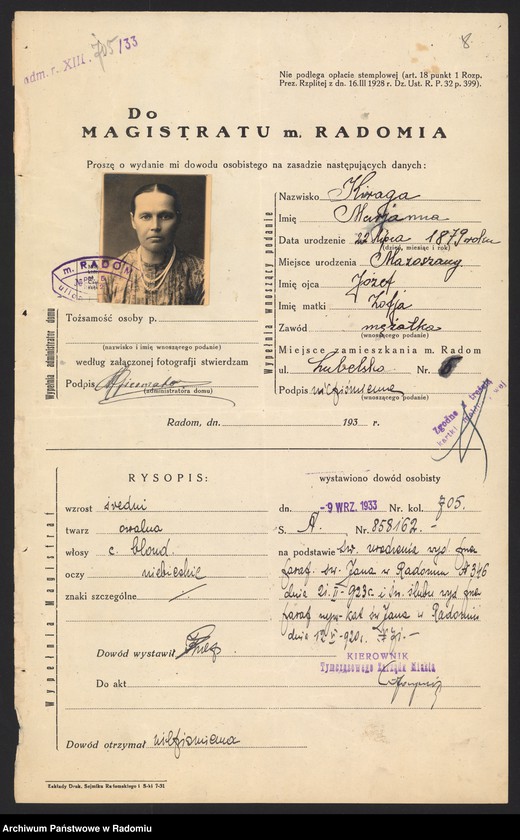 adm. r. XIII. 705/33
8.
Nie podlega opłacie stemplowej (art. 18 punkt 1 Rozp.
Prez. Rzplitej z dn. 16.III 1928 r. Dz. Ust. R. P. 32 p. 399).
Do
MAGISTRATU m. RADOMIA
Proszę o wydanie mi dowodu osobistego na zasadzie następujących danych:
Wypełnia wnoszący podanie
Nazwisko Kiraga
Imię Marjanna
Data urodzenia 22 lipca 1879 roku
(dzień, miesiąc i rok)
Miejsce urodzenia Mazoszany
Imię ojca Józef
Imię matki Zofja
Zawód mężatka
(wnoszącego podanie)
Miejsce zamieszkania m. Radom
ul. Lubelska Nr. 6
Podpis niepiśmienna
(wnoszącego podanie)
m. RADOM
Wypełnia administrator domu
Tożsamość osoby p.
(nazwisko i imię wnoszącego podanie)
według załączonej fotografji stwierdzam
Podpis
(administratora domu)
Zgodne z
Radom, dn. 193 r.
Wypełnia Magistrat
RYSOPIS:
wzrost średni
twarz owalna
włosy c. blond.
oczy niebieskie
znaki szczególne
Dowód wystawił
Do akt
Dowód otrzymał niepiśmienna
wystawiono dowód osobisty
dn. -9 WRZ. 1933 Nr. kol. 705.
S. A Nr. 858162.-
na podstawie św. urodzenia wyd. przez
paraf. św. Jana w Radomiu № 346
dnia 21.II-923r. i św. ślubu wyd. przez
paraf. rzym-kat. św. Jana w Radomiu
dnia 12.V-920r. № 31.-
KIEROWNIK
Tymczasowego Zarządu Miasta
Zakłady Druk. Sejmiku Radomskiego i S-ki 7-31
Archiwum Państwowe w Radomiu